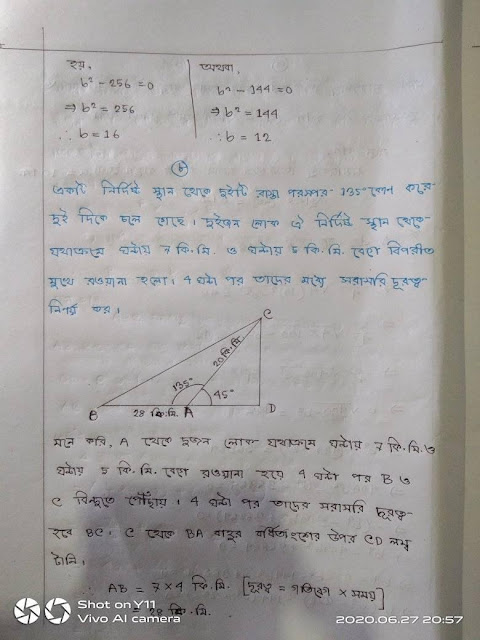 হয়,
b² - 256 = 0
⇒ b² = 256
∴ b = 16
অথবা,
b² - 144 = 0
⇒ b² = 144
∴ b = 12
একটি নির্দিষ্ট স্থান থেকে দুইটি রাস্তা পরস্পর 135° কোণ করে
দুই দিকে চলে গেছে। দুইজন লোক ঐ নির্দিষ্ট স্থান থেকে
যথাক্রমে ঘন্টায় 7 কি.মি. ও ঘন্টায় 5 কি.মি. বেগে বিপরীত
মুখে রওয়ানা হলো। 4 ঘন্টা পর তাদের মধ্যে সরাসরি দূরত্ব
নির্ণয় কর।
C
20 কি.মি.
135°
45°
B
28 কি.মি.
A
D
মনে করি, A থেকে দুজন লোক যথাক্রমে ঘন্টায় 7 কি.মি. ও
ঘন্টায় 5 কি.মি. বেগে রওয়ানা হয়ে 4 ঘন্টা পর B ও
C বিন্দুতে পৌঁছায়। 4 ঘন্টা পর তাদের সরাসরি দূরত্ব
হবে BC। C থেকে BA বাহুর বর্ধিতাংশের উপর CD লম্ব
টানি।
∴ AB = 7 × 4 কি.মি. [দূরত্ব = গতিবেগ × সময়]
= 28 কি.মি.
Shot on Y11
Vivo AI camera
2020.06.27 20:57